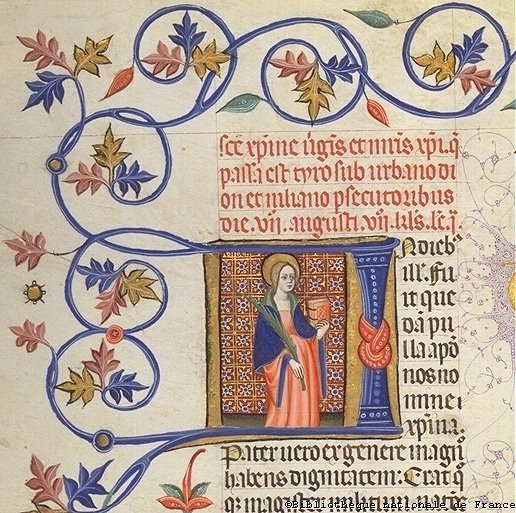 scē xp̄ine ūgīs et mr̄is xp̄i. q̄
passa est tyro sub urbano di
on et iuliano p̄secutoribus
die. viii. augusti. viii. kl's. lc̄. i.
N dieb'
ill'. Fu
it que
dā pu
lla apo
nos no
mine
xp̄ina.
Pater uero ex genere magn̄
habens dignitatem: Erat q̄
magister militum
©Bibliothèque nationale de France